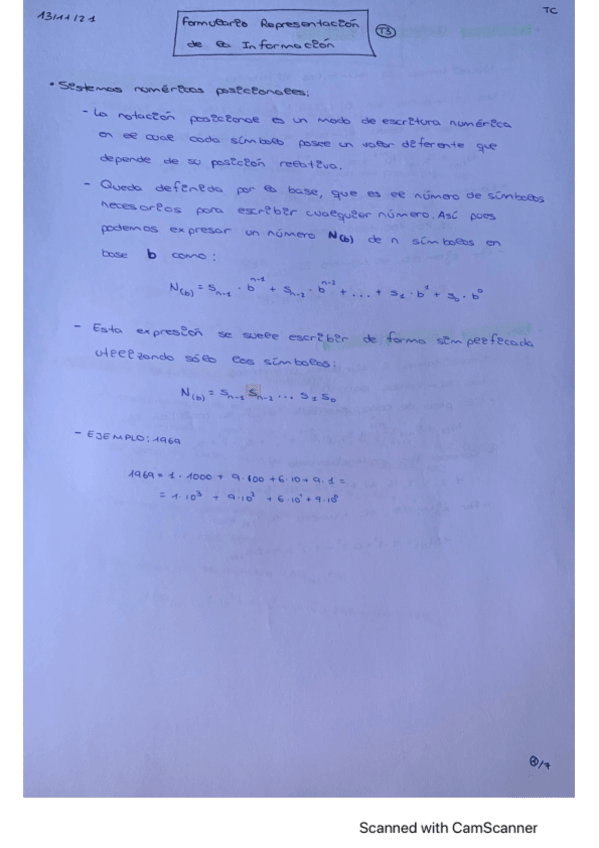 13/11/21
TC
Formulario Representación
de la Información
T3
• Sistemas numéricos posicionales:
- La notación posicional es un modo de escritura numérica
en el cual cada símbolo posee un valor diferente que
depende de su posición relativa.
- Queda definida por la base, que es el número de símbolos
necesarios para escribir cualquier número. Así pues
podemos expresar un número N(b) de n símbolos en
base b como:
N(b) = Sn-1 · b^n-1 + Sn-2 · b^n-2 + ... + S1 · b^1 + S0 · b^0
- Esta expresión se suele escribir de forma simplificada
utilizando sólo los símbolos:
N(b) = Sn-1 Sn-2 ... S1 S0
- EJEMPLO: 1969
1969 = 1 · 1000 + 9 · 100 + 6 · 10 + 9 · 1 =
= 1 · 10^3 + 9 · 10^2 + 6 · 10^1 + 9 · 10^0
Scanned with CamScanner